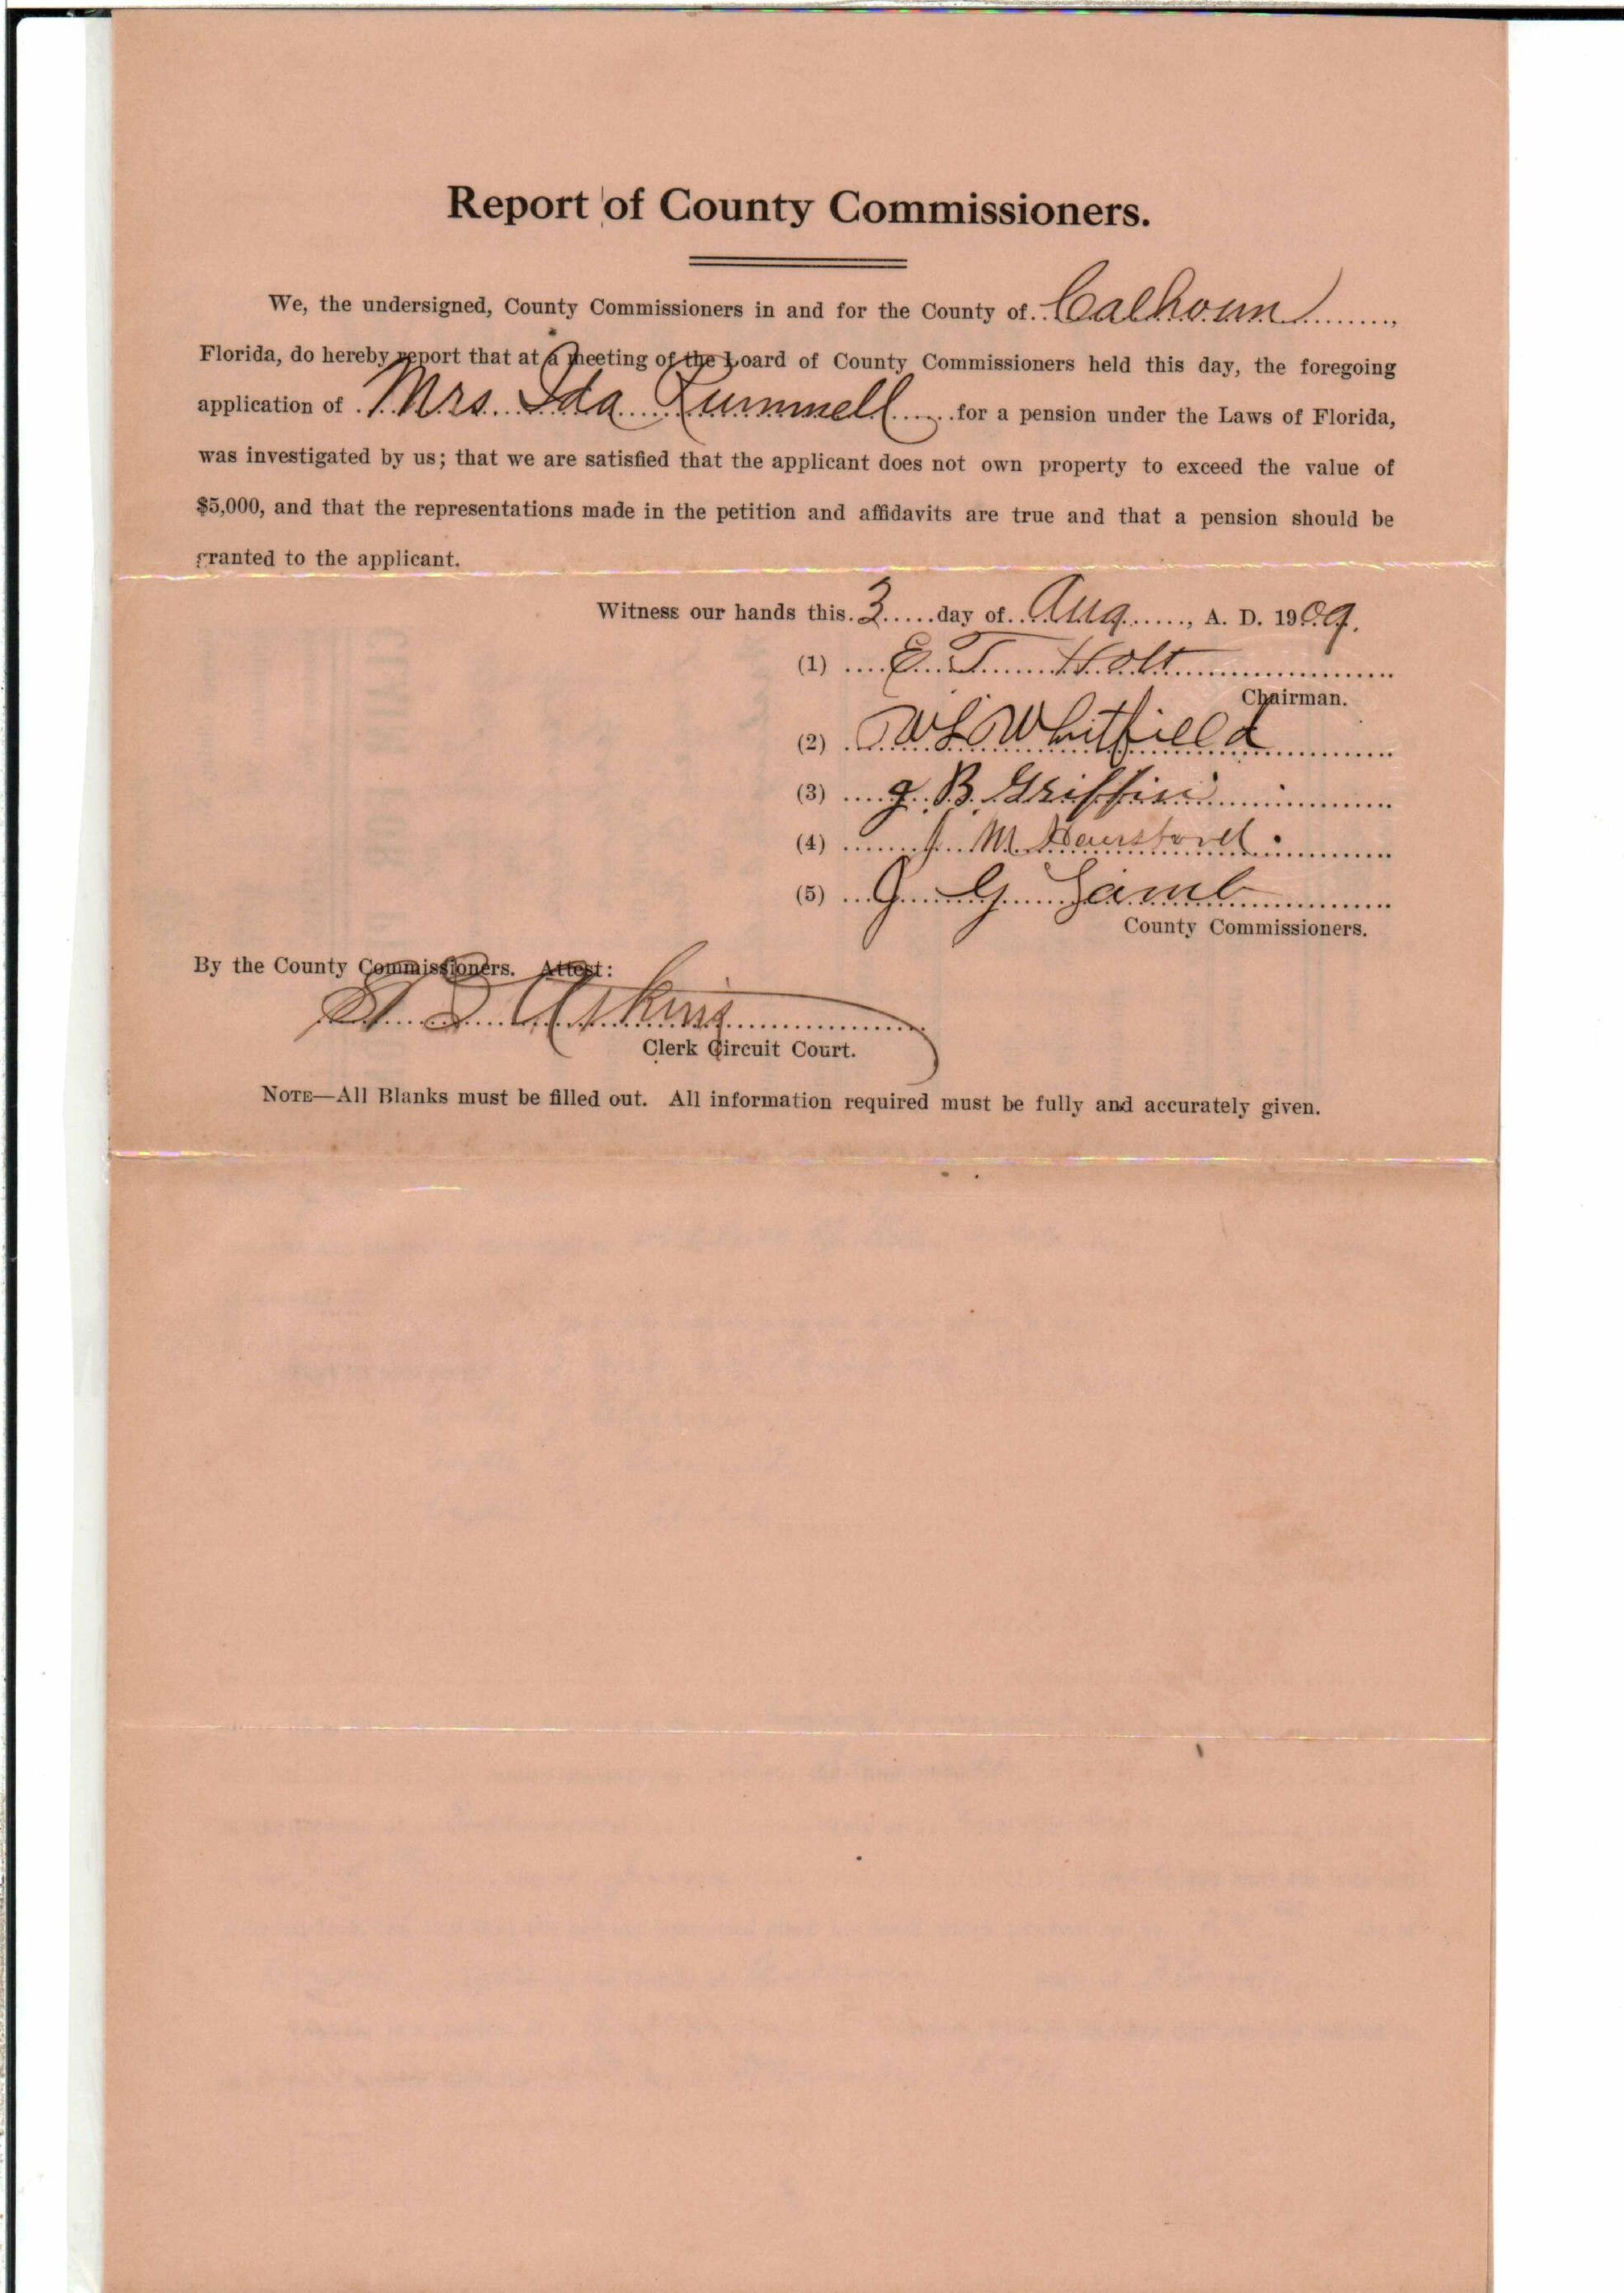 Report of County Commissioners.
We, the undersigned, County Commissioners in and for the County of Calhoun,
Florida, do hereby report that at a meeting of the Board of County Commissioners held this day, the foregoing
application of Mrs. Ida Rummell for a pension under the Laws of Florida,
was investigated by us; that we are satisfied that the applicant does not own property to exceed the value of
$5,000, and that the representations made in the petition and affidavits are true and that a pension should be
granted to the applicant.
Witness our hands this 3 day of Aug, A. D. 1909.
(1) E. T. Holt
Chairman.
(2) W L Whitfield
(3) J. B. Griffin
(4) J. M.
(5) J. G. Lamb
County Commissioners.
By the County Commissioners. Attest:
Clerk Circuit Court.
NOTE—All Blanks must be filled out. All information required must be fully and accurately given.